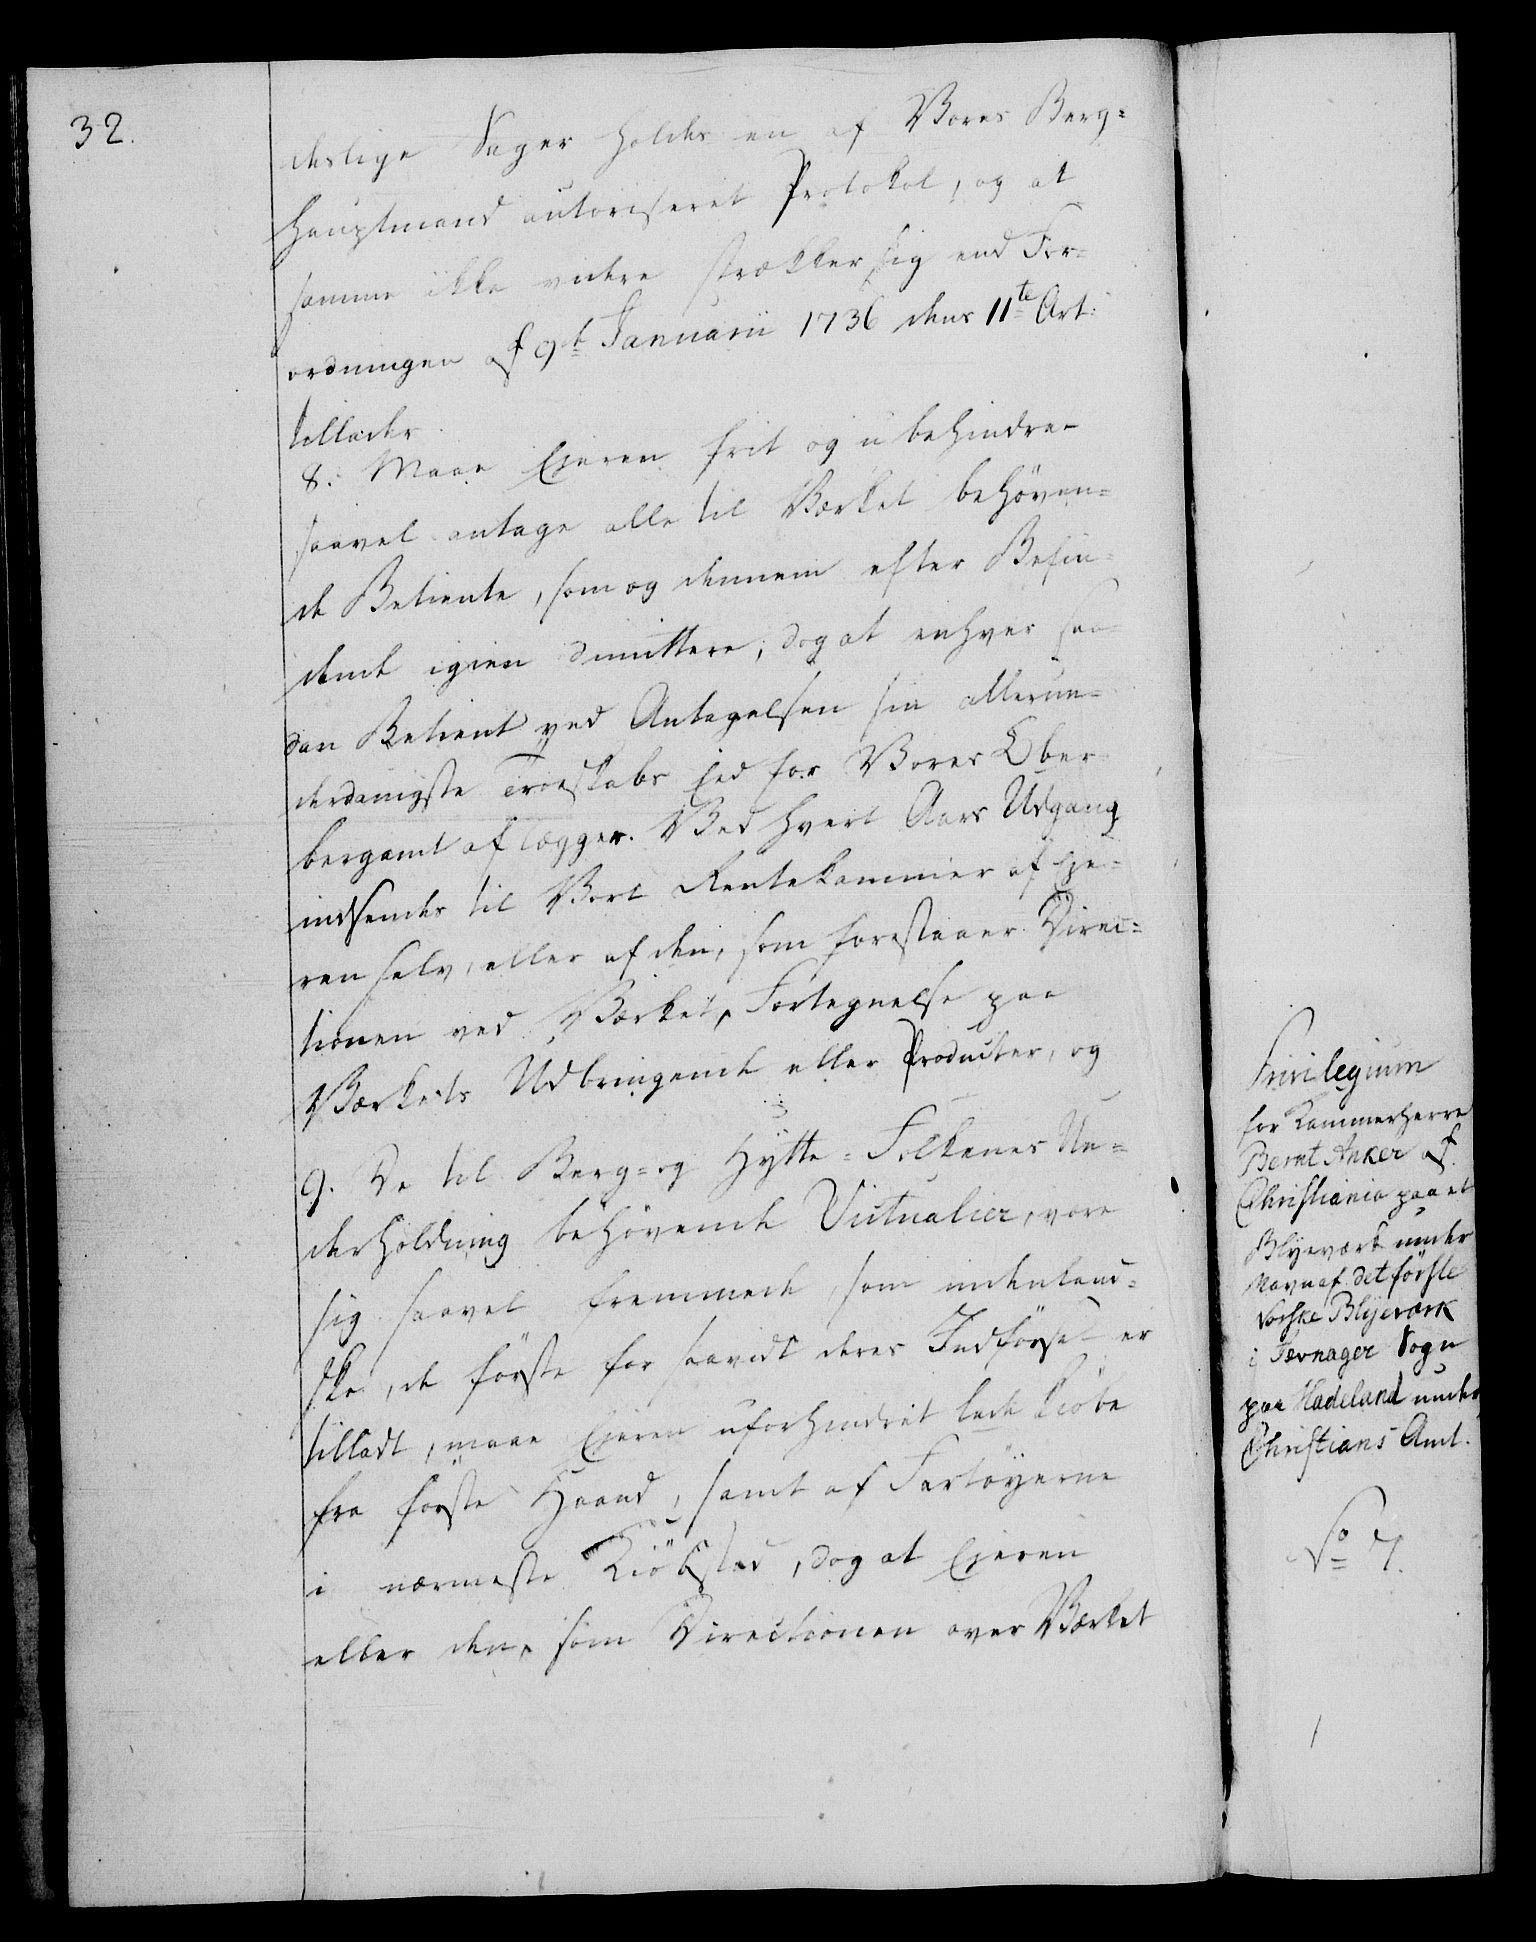 32.
deslige Sager holdes en af Vores Berg=
hauptmand autoriseret Protokol, og at
samme ikke videre strækker sig end For=
ordningen af 9de Januarii 1736 dens 11te Art:
tillader.
8. Maae Ejeren frit og ubehindret
saavel antage alle til Værket behöven=
de Betiente, som og dennem efter Befin=
dende igien dimittere; dog at enhver saa=
dan Betient ved Antagelsen sin allerun=
derdanigste Troeskabs Eed for Vores Ober=
bergamt aflægger. Ved hvert Aars Udgang
indsendes til Vort Rentekammer af Eje=
ren selv, eller af den, som forestaaer Direc=
tionen ved Værket, Fortegnelse paa
Værkets Udbringende eller Producter, og
9. De til Berg= og Hytte=Folkenes Un=
derholdning behövende Victualier, være
sig saavel fremmede, som indenland=
ske, de förste for saavidt deres Indförsel er
tilladt, maae Ejeren uforhindret lade kiöbe
fra förste Haand, samt af Fartöyerne
i nærmeste Kiöbstad, dog at Ejeren
eller den, som Directionen over Værket
Privilegium
for Kammerherre
Bernt Anker af
Christiania paa et
Blyeværk under
Navn af det förste
Norske Blyeværk
i Jevnager Sogn
paa Hadeland under
Christians Amt.
No 7.